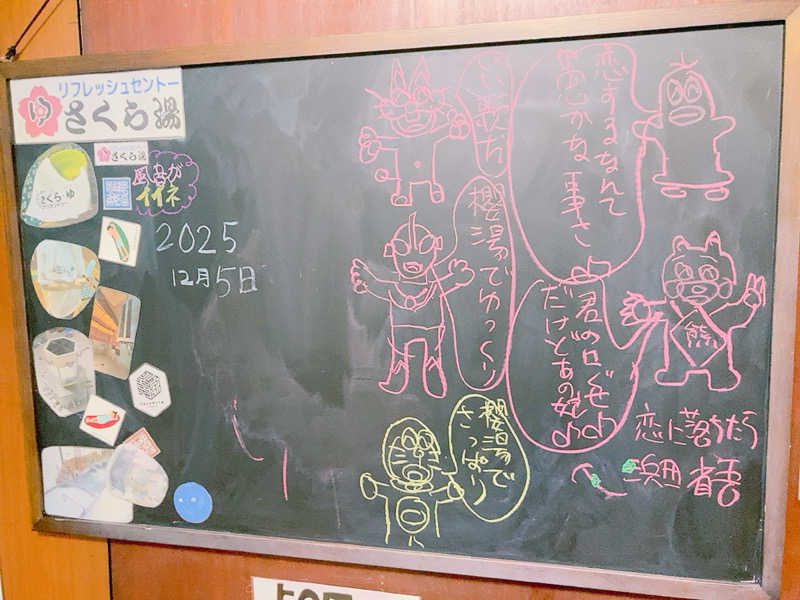 リフレッシュセントー
ゆ
さくら湯
さくら湯
さくら・ゆ
風呂が
イイネ
2025
12月5日
恋するなんて
愚かな事さ
いい歌だ
櫻湯でゆっくり
君の口ぐせ
だけどあの娘
熊
櫻湯で
さっぱり
恋に落ちたら
浜田省吾